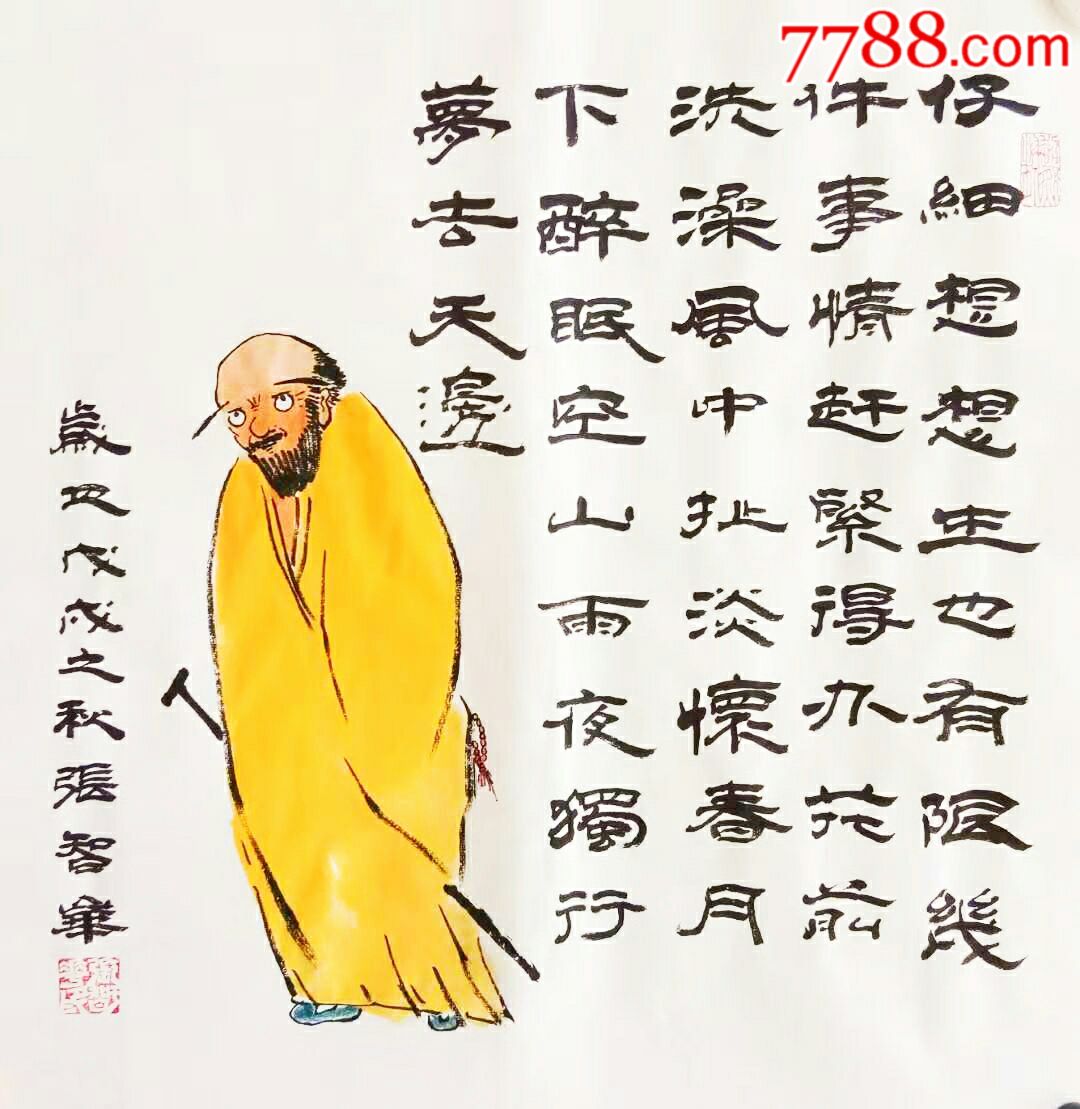 7788.com
仔細想想生也有限幾
件事情赶緊得办花前
洗澡風中扯淡懷春月
下醉眠空山雨夜獨行
夢去天邊
歲次戊戌之秋張智